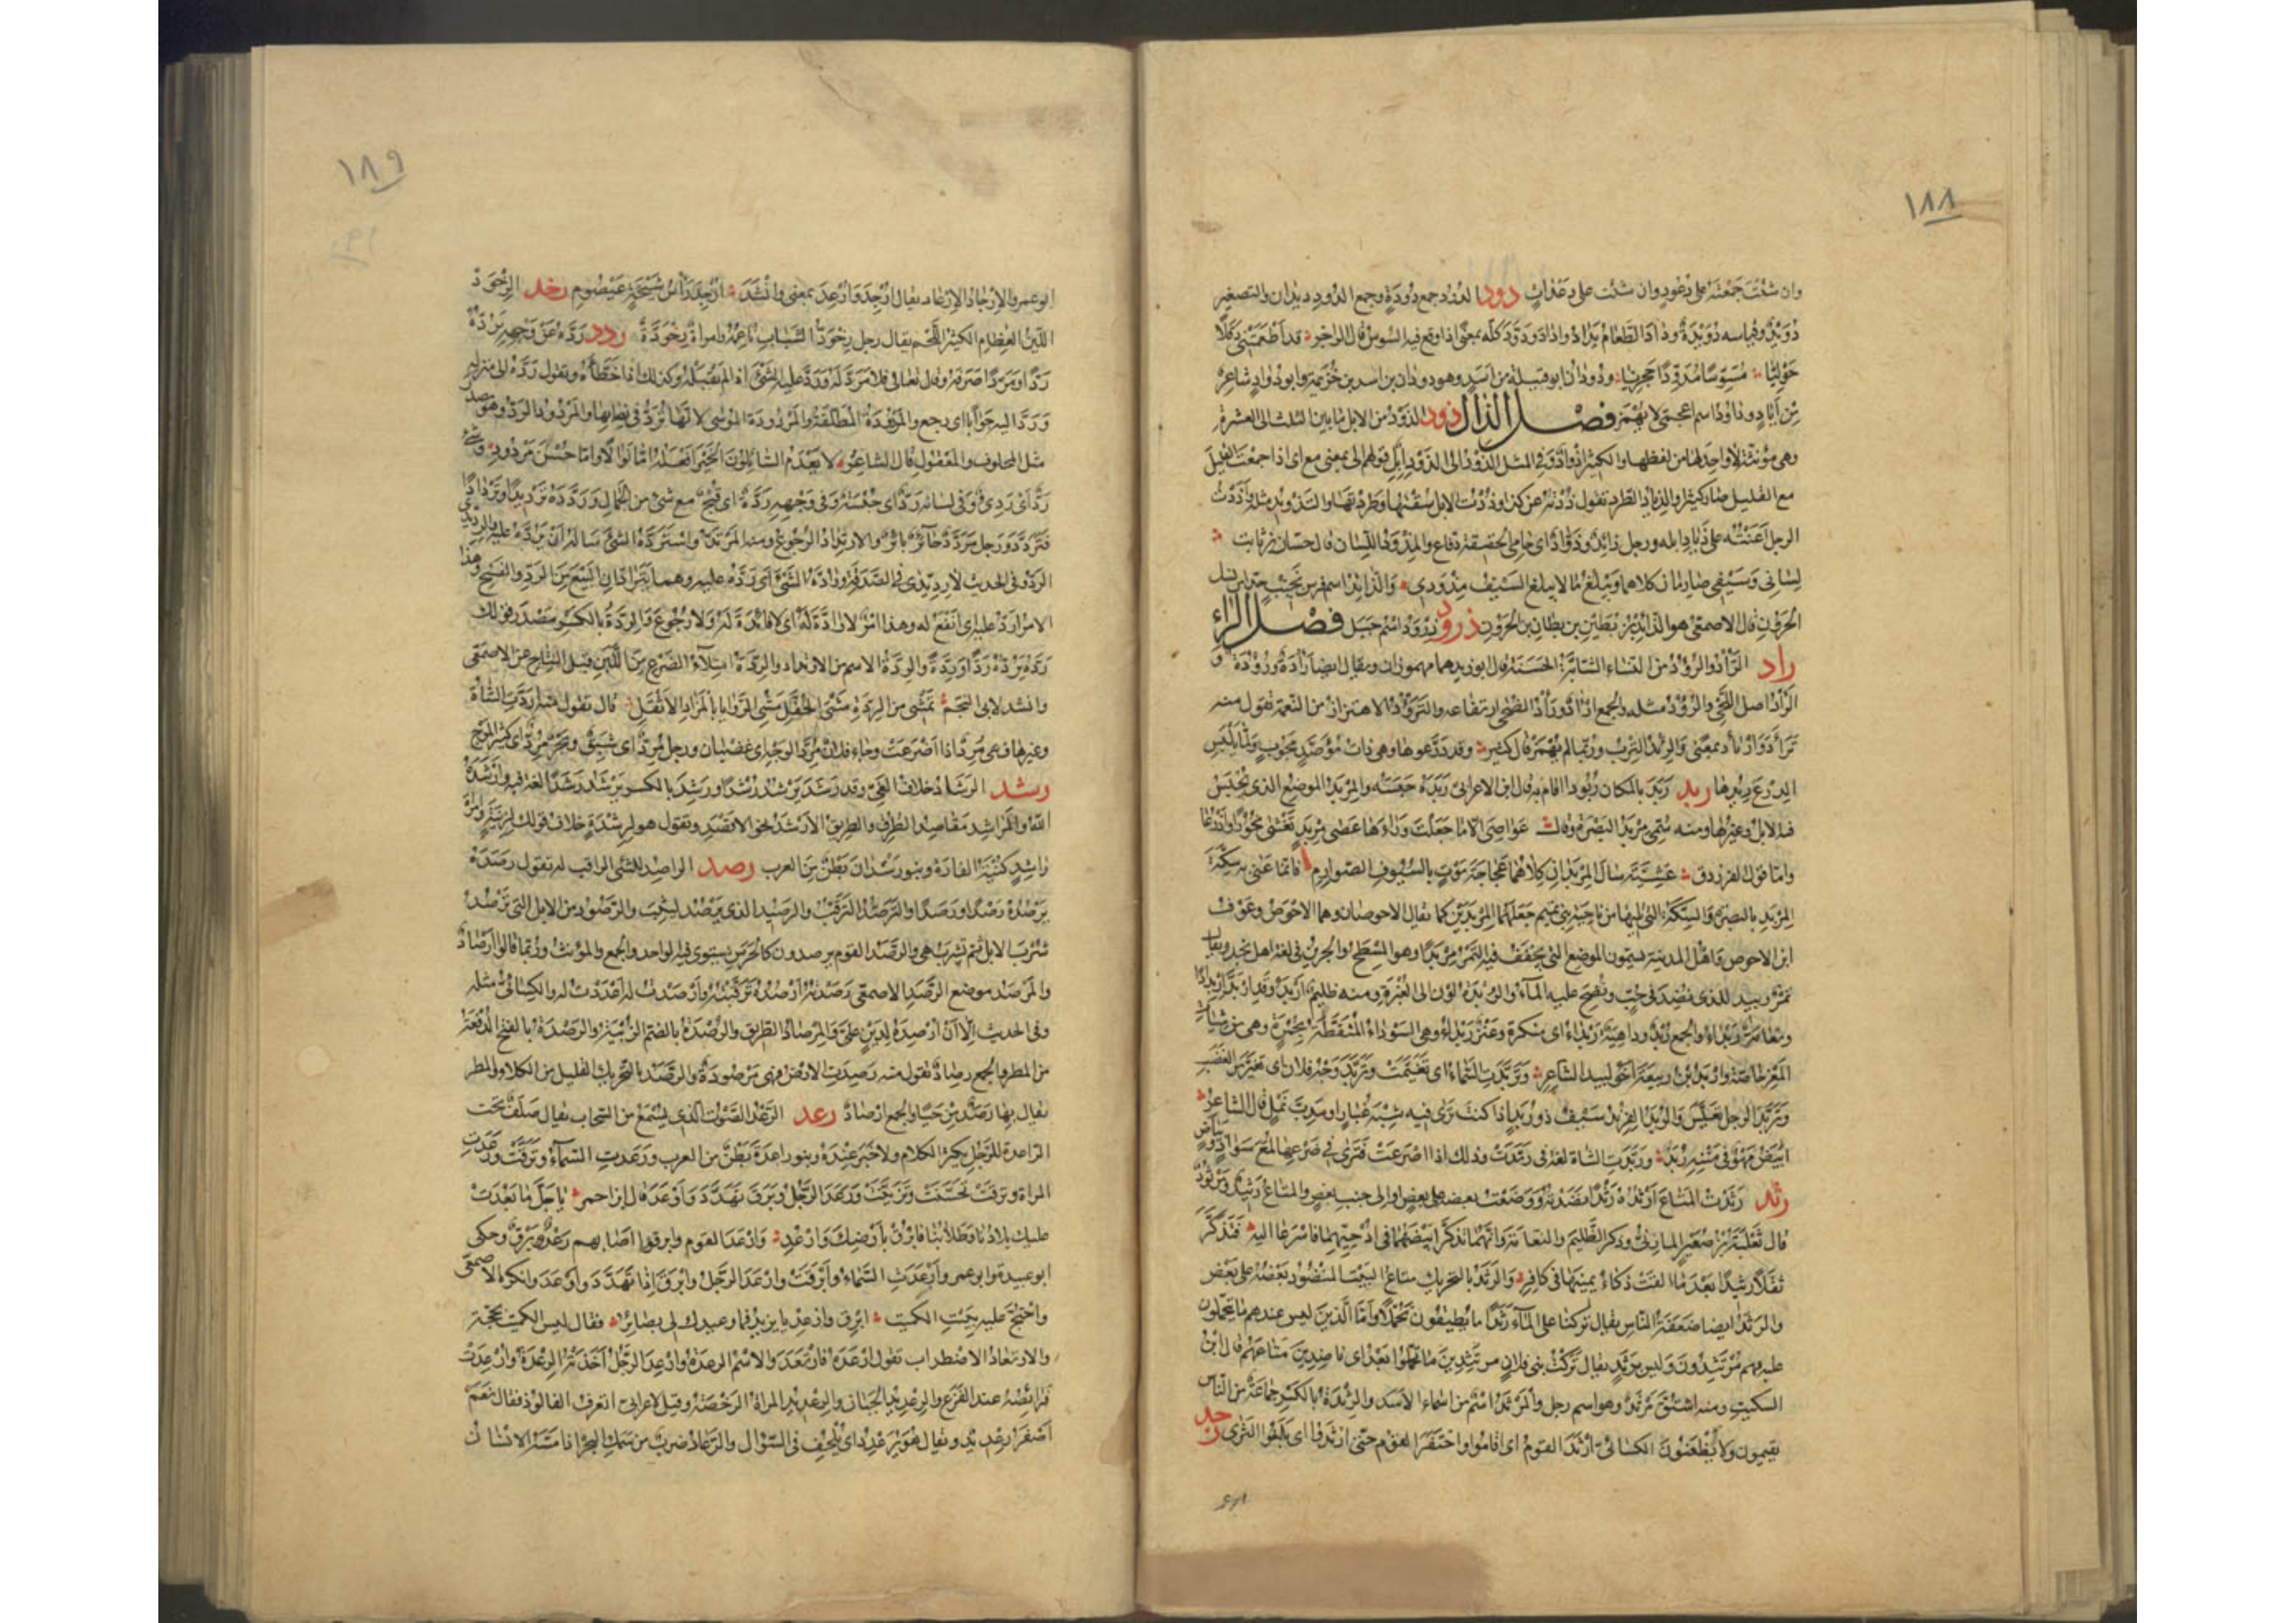 ١٨٨
وان شئت جَمَعْتَه على دُعْودٍ وان شئت على دَعَداتٍ دود الدود جمع دُودَة وجمع الدود ديدان والتصغير
دُوَيْد وقياسه دُوَيْدَة وداد الطعام يَداد واداد ودَوَّد كله بمعنى اذا وقع فيه السوس قال الراجز قد اَطْعَمَتْنِى دَقَلًا
حَوْلِيّا مُسَوِّسًا مُدَوِّدًا حَجْرِيّا ودُودان ابو قبيلة من اَسَد وهو دودان بن اسد بن خُزَيمة وابو دُواد شاعر
من اِياد وداود اسم اعجمى لا يُهْمَز فصل الذال ذود الذَّوْد من الابل ما بين الثلث الى العشرة
وهى مؤنثة لا واحد لها من لفظها والكثير اَذواد وفى المثل الذَّوْد الى الذَّوْد اِبِل قولهم الى بمعنى مع اى اذا جمعت القليل
مع القليل صار كثيرا والذياد الطرد تقول ذُدْته عن كذا وذُدْت الابل سُقْتها وطردتها والتذويد مثله واَذَدْتُ
الرجل اَعَنْتُه على ذياد ابله ورجل ذائد وذَوّاد اى حامى الحقيقة دفّاع والمِذْوَد اللسان قال حسان بن ثابت
لِسانى وَسَيْفى صارمان كلاهما ويَبْلُغ ما لا يبلغ السَّيْف مِذْوَدى والذائد اسم فرس نجيب جدا من نسل
الحَرُون قال الاصمعى هو الذائد بن بُطَيْن بن بِطان بن الحَرُون ذرود ذَرْوَد اسم جبل فصل الراء
راد الرَّأْد والرُّؤْد من النساء الشابّة الحَسَنَة قال ابو زيد هما مهموزان ويقال ايضا رَأْدَة ورُؤْدَة و
الرَّأْد اصل اللَّحْى والرُّؤْد مثله والجمع اَرْآد ورَأْد الضحى ارتفاعه والتَرَؤُّد الاهتزاز من النعمة تقول منه
تَرَأَّد وارْتَأَد بمعنًى والرِّئْد التِّرْب وربما لم يُهْمَز قال كثير وقد دَرَّعوها وهى ذات مُؤَصَّدٍ مَجُوبٍ ولمّا يَلْبَس
الدِّرْع رِيدُها ربد رَبَدَ بالمكان رُبُودا اقام به قال ابن الاعرابى رَبَدَه حَبَسَه والمِرْبَد الموضع الذى يُحْبَس
فيه الابل وغيرها ومنه سُمّى مِرْبَد البَصْرة وقال عَواصِىَ الّا ما جَعَلْتُ وَراءَها عَصا مِرْبَدٍ تَغْشى نُحُورًا واَذْرُعا
وامّا قول الفرزدق عَشِيَّةَ سالَ المِرْبَدانِ كِلاهُما عَجاجَةَ مَوْتٍ بالسُّيُوفِ الصَّوارِمِ فانما عَنى به سِكَّةَ
المِرْبَد بالبصرة والسكة التى تليها من ناحية بنى تميم جَعَلَهُما المِرْبَدَيْن كما يقال الاحوصان وهما الاحوص وعوف
ابن الاحوص واهل المدينة يسمون الموضع الذى يُجَفَّف فيه التَّمْر مِرْبَدًا وهو المِسْطَح والجرين فى لغة اهل نجد ويقال
تمر ربيد للذى نُضِّد فى جُبّ ونُضِحَ عليه الماء والرُّبْدَة لون الى الغُبْرَة ومنه ظليم اَرْبَد وقد ارْبَدَّ ارْبِدادًا
ونعامة رَبْداء والجمع رُبْد وداهية رَبْداء اى منكرة وعَنْز رَبْداء وهى السوداء المُنَقَّطَة بحُمْرة وهى من شيات
المَعْز خاصّة واربد بن ربيعة اخو لبيد الشاعر وتَرَبَّدت السماء اى تَغَيَّمَت وتَرَبَّد وَجْهُ فلان اى تغيّر من الغضب
وتَرَبَّد الرجل تَعَبَّس والرُّبَد الفِرِنْد سيف ذو رُبَد اذا كنت تَرى فيه شِبْهَ غُبار او مَدِبَّ نَمْل قال الشاعر
اَبْيَضُ مَهْوٌ فى مَتْنِه رُبَد ورَبَّدت الشاة لغة فى رَمَّدَت وذلك اذا اَضْرَعَت فترى فى ضَرْعها لُمَعَ سَوادٍ وبَياضٍ
رثد رَثَدْت المتاع اَرْثُدُه رَثْدًا نَضَدْته ووضعت بعضه على بعض او الى جنب بعض والمتاع رَثِيد ومَرْثُود
قال ثعلبة بن صُعَيْر المازنى وذكر الظليم والنعامة وانهما تذكرا بيضهما فى اُدْحِيّهما فاسرعا اليه فتَذَكَّرا
ثَقَلًا رَثِيدًا بَعْدَ ما اَلْقَتْ ذُكاءُ يَمِينَها فى كافِرِ والرَّثَد بالتحريك متاع البيت المنضود بعضه على بعض
والرَّثَد ايضا ضَعَفَة الناس يقال تركنا على الماء رَثَدًا ما يُطِيقُون تَحَمُّلًا وامّا الذين ليس عندهم ما يتحمّلون
عليه فهم مُرْتَثِدُون وليس برَثَد يقال تركت بنى فلان مُرْتَثِدِين ما تحمّلوا بَعْد اى ناضدين متاعهم قال ابن
السكيت ومنه اشتقّ مَرْثَد وهو اسم رجل والمَرْثَد اسم من اسماء الاسد والرِّثْدَة بالكسر جماعة من الناس
يقيمون ولا يَظْعَنُون الكسائى اَرْثَدَ القوم اى اقاموا واحتفر القوم حتى اَرْثَدُوا اى بلغوا الثَّرى رجد
١٨٩
ابو عمرو الارجاد الارعاد يقال اُرْجِدَ واُرْعِدَ بمعنى وانشد اُرْجِدَ رَأْسُ شَيْخَةٍ عَيْضُومِ رخد الرِّخْوَدّ
اللَّيِّن العظام الكثير اللحم يقال رجل رِخْوَدّ الشباب ناعمه وامراة رِخْوَدَّة ردد رَدَّه عن وَجْهِه يَرُدُّه
رَدًّا ومَرَدًّا صَرَفَه وقال تعالى فلا مَرَدَّ له ورَدَّ عليه الشئ اذا لم يَقْبَلْه وكذلك اذا خَطَّأه وتقول رَدَّه الى منزله
ورَدَّ اليه جوابا اى رجع والمَرْدُودَة المُطَلَّقَة والمَرْدُودَة المُوسى لانّها تُرَدّ فى نِصابها والمَرْدُود الرَّدّ وهو مصدر
مثل المحلوف والمعقول قال الشاعر لا يَعْدَم السّائلون الخَيْرَ اَفْعَلُه اِمّا نَوالًا واِمّا حُسْنَ مَرْدُودِ وشئ
رَدّ اى رَدِىّ وفى لسانه رَدّ اى حُبْسَة وفى وجهه رَدَّة اى قُبْح مع شئ من الجمال ورَدَّدَه تَرْدِيدًا وتَرْدادًا
فتَرَدَّد ورجل مُرَدَّد حائر بائر والارتداد الرجوع ومنه المرتد واسْتَرَدَّه الشئ سأله ان يَرُدَّه عليه والرِّدِّيدَى
الرد وفى الحديث لا رِدِّيدَى فى الصَّدَقة ورادَّه الشئ اى رَدَّه عليه وهما يَتَرادّان البَيْع من الرد والفسخ وهذا
الامر اَرَدّ عليه اى انفع له وهذا امر لا رادّة له اى لا فائدة له ولا رُجُوع والرِّدَّة بالكسر مصدر قولك
رَدَّه يَرُدُّه رَدًّا ورِدَّة والرِّدَّة الاسم من الارتداد والرِّدَّة امتلاء الضرع من اللبن قبل النتاج عن الاصمعى
وانشد لابى النجم تَمْشِى من الرِّدَّةِ مَشْىَ الحُفَّلِ مَشْىَ الرَّوايا بالمَزادِ الاَثْقَلِ قال تقول منه اَرَدَّت الشاة
وغيرها فهى مُرِدّ اذا اَضْرَعَت وجاء فلان مُرِدّ الوجه اى غضبان ورجل مُرِدّ اى شَبِق وبحر مُرِدّ اى كثير الموج
رشد الرَّشاد خلاف الغَىّ وقد رَشَد يَرْشُد رُشْدًا ورَشِد بالكسر يَرْشَد رَشَدًا لغة فيه واَرْشَدَه
الله والمَراشِد مقاصد الطُّرُق والطريق الاَرْشَد نحو الاَقْصَد وتقول هو لِرِشْدَة خلاف قولك لزِنْيَة واُمّ
راشِد كُنْيَة الفارة وبنو رَشْدان بَطْن من العرب رصد الراصد للشئ الراقب له تقول رَصَدَه
يَرْصُدُه رَصْدًا ورَصَدًا والتَّرَصُّد التَّرَقُّب والرَّصِيد الذى يَرْصُد لِيَثِبَ والرَّصُود من الابل التى تَرْصُد
شُرْبَ الابل ثم تشرب هى والرَّصَد القوم يرصدون كالحَرَس يستوى فيه الواحد والجمع والمؤنث وربما قالوا اَرْصاد
والمَرْصَد موضع الرَّصَد الاصمعى رَصَدْته اَرْصُدُه تَرَقَّبْته واَرْصَدْت له اَعْدَدْت له والكسائى مثله
وفى الحديث اِلّا اَن اُرْصِدَه لِدَيْنٍ علىّ والمِرْصاد الطريق والرُّصْدَة بالضم الزُّبْيَة والرَّصْدَة بالفتح الدُّفْعَة
من المطر والجمع رِصاد تقول منه رُصِدَت الارض فهى مَرْصُودَة والرَّصَد بالتحريك القليل من الكلاء والمطر
يقال بها رَصَد من حَيًا والجمع اَرْصاد رعد الرَّعْد الصَّوْت الذى يُسْمَع من السحاب يقال صَلَفٌ تحت
الراعدة للرجل يكثر الكلام ولا خير عنده وبنو راعدة بَطْن من العرب ورَعَدت السماء وبَرَقَت ورَعَدت
المراة وبرقت تحسّنت وتزيّنت ورَعَد الرجل وبَرَق تَهَدَّد واَوْعَد قال ابن احمر يا جَلَّ ما بَعُدَتْ
عليك بلادُنا وطِلابُنا فابْرُقْ بأَرْضِكَ وارْعُدِ واَرْعَد القوم وابرقوا اصابهم رَعْد وبَرْق وحكى
ابو عبيدة وابو عمرو اَرْعَدَت السماء واَبْرَقَت وارعد الرجل وابرق اذا تَهَدَّد واوعد وانكره الاصمعى
واحتج عليه ببيت الكميت اَبْرِقْ واَرْعِدْ يا يَزِيدُ فما وَعِيدُكَ لى بضائر فقال ليس الكميت بحجّة
والارتعاد الاضطراب تقول اَرْعَدَه فارْتَعَد والاسم الرِّعْدَة واُرْعِد الرجل اخذته الرِّعْدَة واُرْعِدَت
فَرائِصُه عند الفزع والرِّعْدِيد الجَبان والرِّعْدِيد المراة الرَّخْصَة وقيل لاعرابى اتعرف الفالوذ فقال نعم
اَصْفَر رِعْدِيد ويقال هو يُرَعْدِد اى يُلْحِف فى السؤال والرَّعّاد ضرب من سمك البحر اذا مَسَّه الانسان